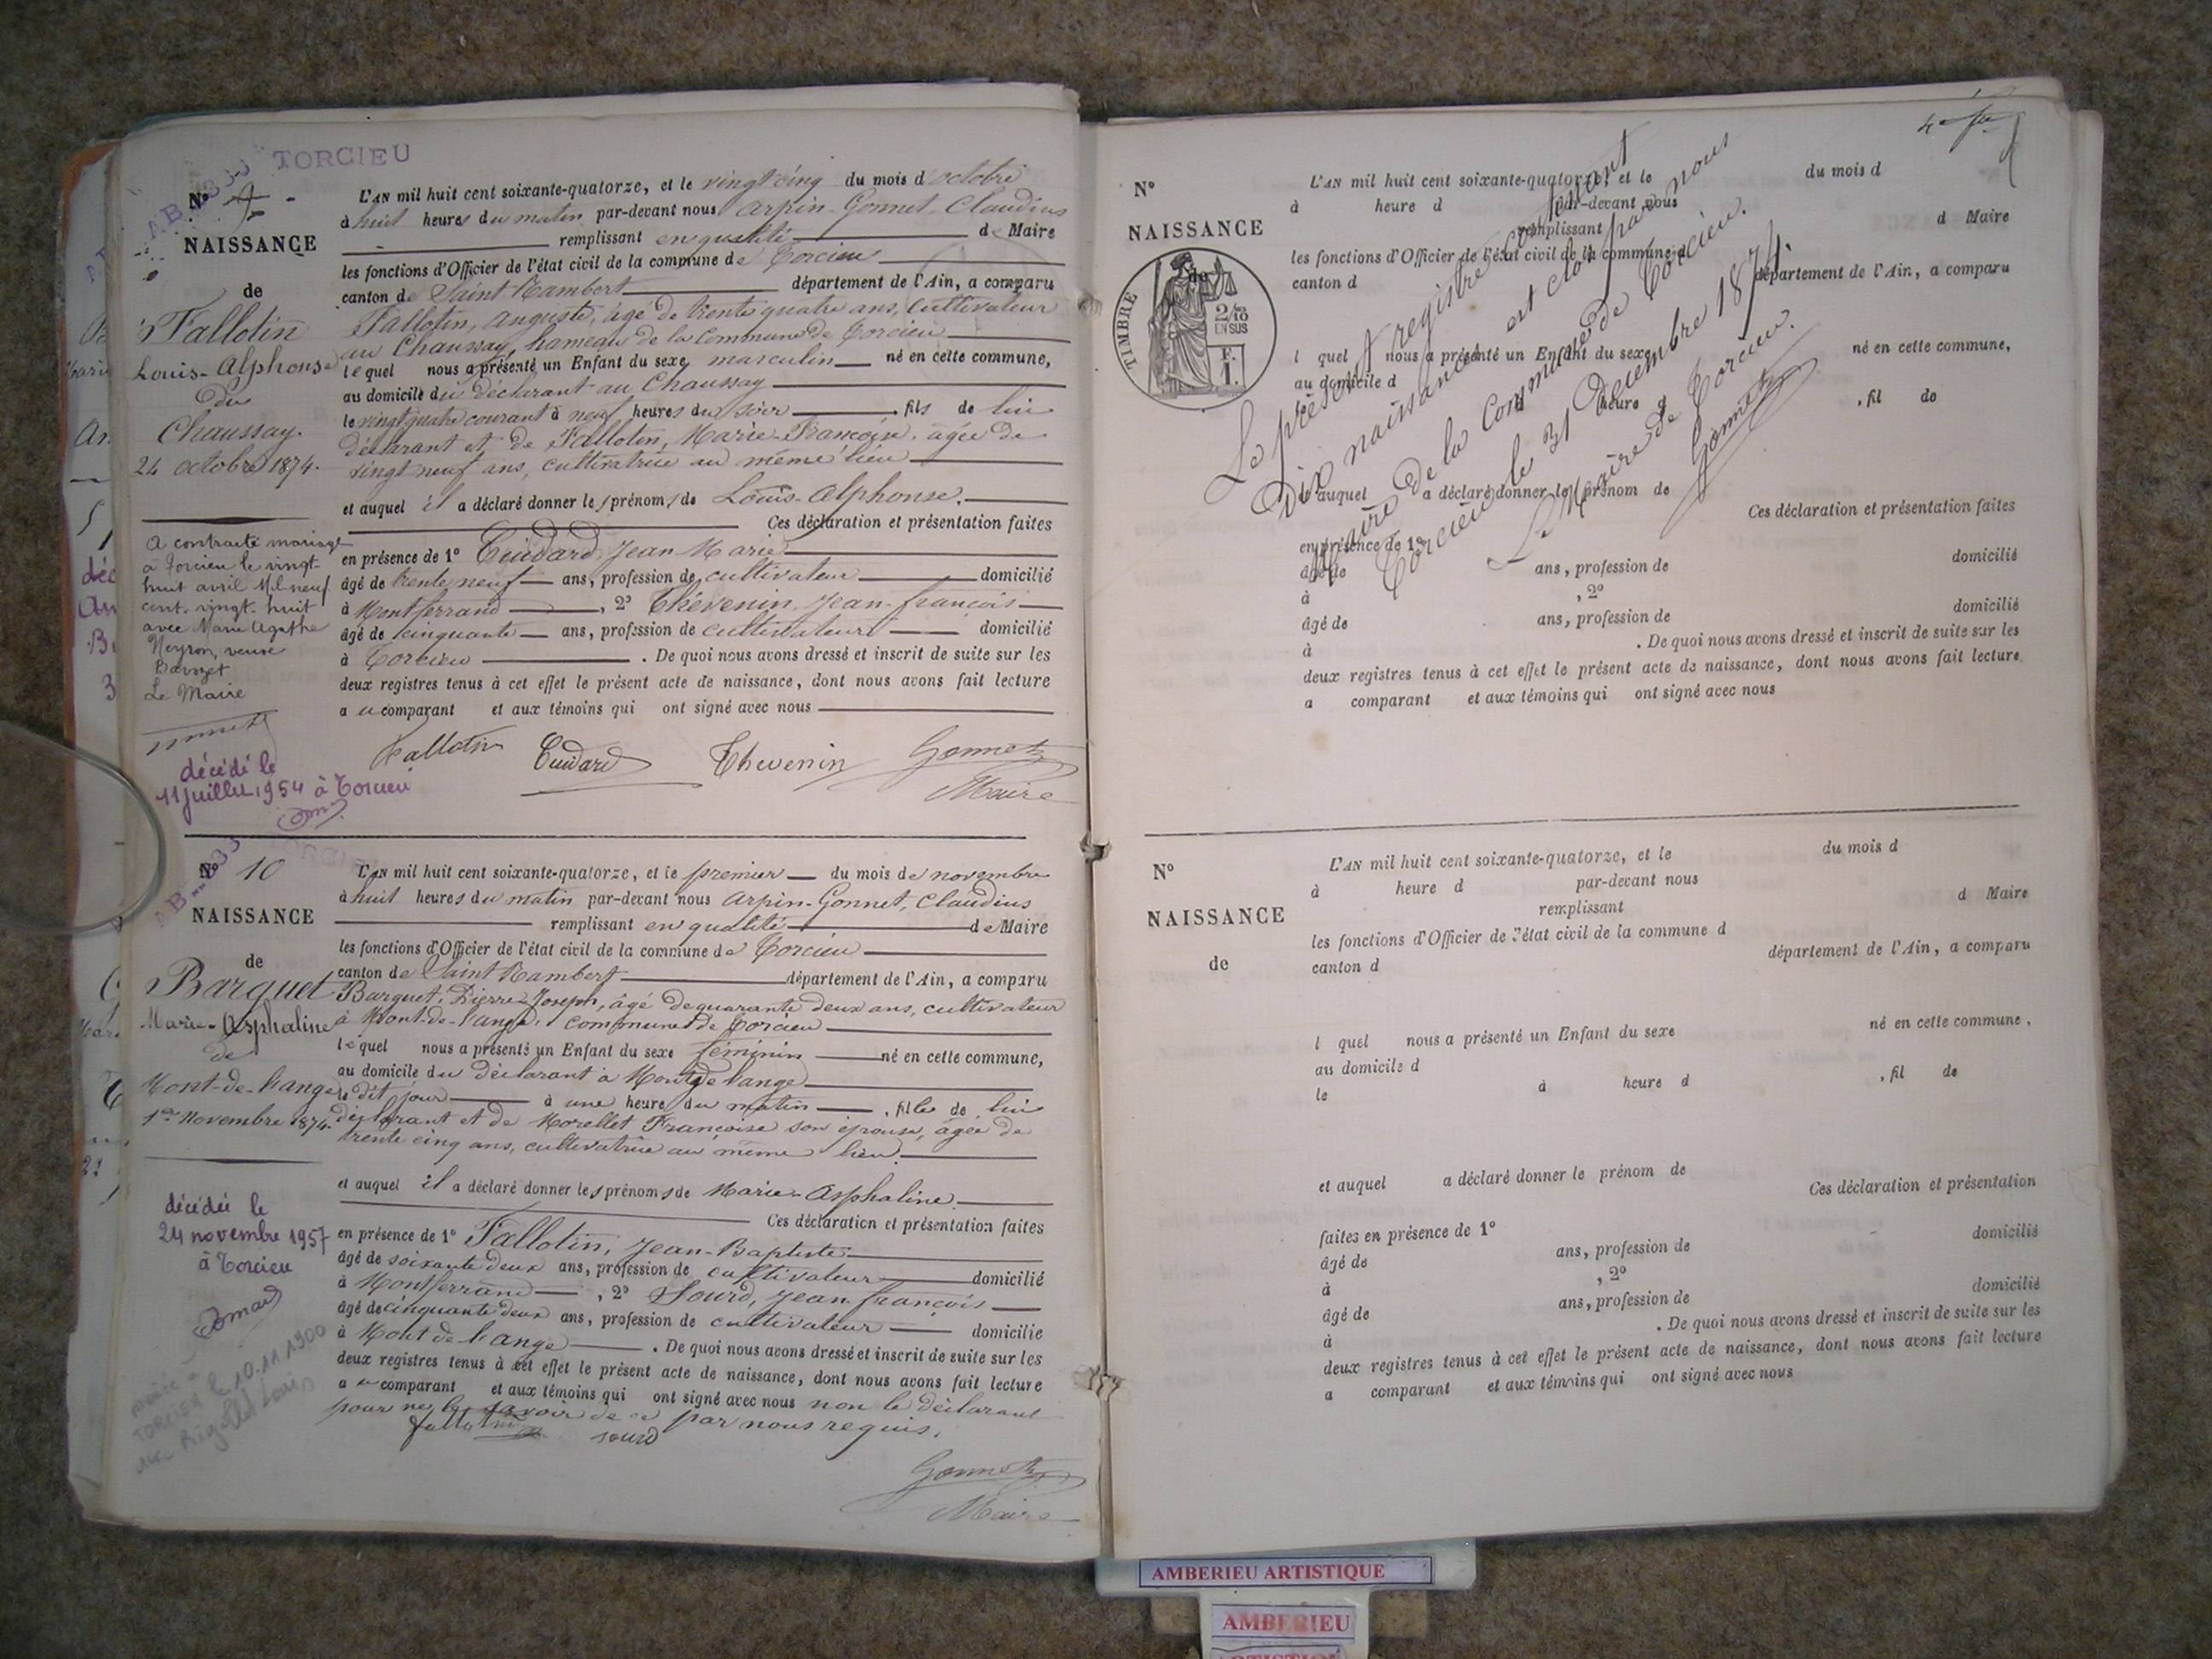 TORCIEU
N° 9
NAISSANCE
de
Fallotin
Louis-Alphonse
du
Chaussay.
24 octobre 1874.
L'AN mil huit cent soixante-quatorze, et le vingt cinq du mois d'octobre
à huit heures du matin par-devant nous Arpin-Gonnet, Claudius
remplissant en qualité de Maire
les fonctions d'Officier de l'état civil de la commune de Torcieu
canton de Saint Rambert département de l'Ain, a comparu
Fallotin, Auguste, âgé de trente quatre ans, cultivateur
au Chaussay, hameau de la Commune de Torcieu
lequel nous a présenté un Enfant du sexe masculin né en cette commune,
au domicile du déclarant au Chaussay
le vingt quatre courant à neuf heures du soir , fils de lui
déclarant et de Fallotin, Marie-Françoise, âgée de
vingt neuf ans, cultivatrice au même lieu
et auquel il a déclaré donner les prénoms de Louis-Alphonse.
Ces déclaration et présentation faites
en présence de 1° Cuidard, Jean Marie
âgé de trente neuf ans, profession de cultivateur domicilié
à Montferrand , 2° Thévenin, Jean-françois
âgé de cinquante ans, profession de cultivateur domicilié
à Torcieu . De quoi nous avons dressé et inscrit de suite sur les
deux registres tenus à cet effet le présent acte de naissance, dont nous avons fait lecture
a u comparant et aux témoins qui ont signé avec nous
Fallotin Cuidard Thevenin Gonnet
Maire
A contracté mariage
à Torcieu le vingt-
huit avril Mil neuf
cent vingt-huit
avec Marie Agathe
Neyron, veuve
Le Maire
décédé le
11 juillet 1954 à Torcieu
N° 10
NAISSANCE
de
Barquet
Marie-Asphaline
de
Mont-de-Lange
1er Novembre 1874.
L'AN mil huit cent soixante-quatorze, et le premier du mois de novembre
à huit heures du matin par-devant nous Arpin-Gonnet, Claudius
remplissant en qualité de Maire
les fonctions d'Officier de l'état civil de la commune de Torcieu
canton de Saint Rambert département de l'Ain, a comparu
Barquet, Pierre Joseph, âgé de quarante deux ans, cultivateur
à Mont-de-Lange, commune de Torcieu
lequel nous a présenté un Enfant du sexe féminin né en cette commune,
au domicile du déclarant à Mont de Lange
le dit jour à une heure du matin , fille de lui
déclarant et de Morellet Françoise son épouse, âgée de
trente cinq ans, cultivatrice au même lieu.
et auquel il a déclaré donner les prénoms de Marie-Asphaline.
Ces déclaration et présentation faites
en présence de 1° Fallotin, Jean-Baptiste
âgé de soixante deux ans, profession de cultivateur domicilié
à Montferrand , 2° Sourd, Jean françois
âgé de cinquante deux ans, profession de cultivateur domicilié
à Mont de Lange . De quoi nous avons dressé et inscrit de suite sur les
deux registres tenus à cet effet le présent acte de naissance, dont nous avons fait lecture
a u comparant et aux témoins qui ont signé avec nous non le déclarant
pour ne le savoir de ce par nous requis.
fallotin sourd
Gonnet
Maire
décédée le
24 novembre 1957
à Torcieu
mariée à
TORCIEU le 10.11.1900
avec Rigollet Louis
N°
NAISSANCE
de
TIMBRE
2/10
EN SUS
F.
1.
L'AN mil huit cent soixante-quatorze, et le du mois d
à heure d par-devant nous
remplissant d Maire
les fonctions d'Officier de l'état civil de la commune d
canton d département de l'Ain, a comparu
l quel nous a présenté un Enfant du sexe né en cette commune,
au domicile d
heure d , fil de
et auquel a déclaré donner le prénom de
Ces déclaration et présentation faites
en présence de 1°
âgé de ans, profession de domicilié
à , 2°
âgé de ans, profession de domicilié
à . De quoi nous avons dressé et inscrit de suite sur les
deux registres tenus à cet effet le présent acte de naissance, dont nous avons fait lecture
a comparant et aux témoins qui ont signé avec nous
Le présent registre contenant
Dix naissances est clos par nous
Maire de la Commune de Torcieu.
Torcieu le 31 Decembre 1874.
Le Maire de Torcieu.
Gonnet
N°
NAISSANCE
de
L'AN mil huit cent soixante-quatorze, et le du mois d
à heure d par-devant nous
remplissant d Maire
les fonctions d'Officier de l'état civil de la commune d
canton d département de l'Ain, a comparu
l quel nous a présenté un Enfant du sexe né en cette commune,
au domicile d
le à heure d , fil de
et auquel a déclaré donner le prénom de
Ces déclaration et présentation
faites en présence de 1°
âgé de ans, profession de domicilié
à , 2°
âgé de ans, profession de domicilié
à . De quoi nous avons dressé et inscrit de suite sur les
deux registres tenus à cet effet le présent acte de naissance, dont nous avons fait lecture
a comparant et aux témoins qui ont signé avec nous
AMBERIEU ARTISTIQUE
AMBERIEU
ARTISTIQUE